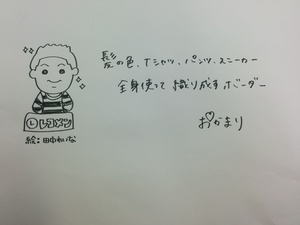 髪の色、Tシャツ、パンツ、スニーカー
全身使って 織り成す ボーダー
おかまり
レコメン
絵:田中れいな